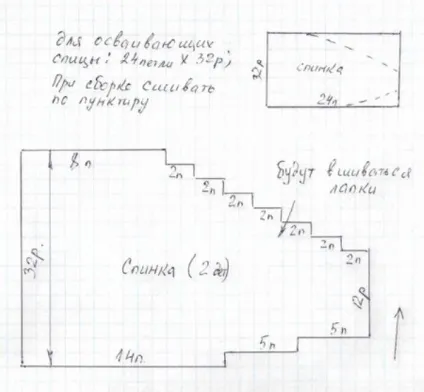 для осваивающих
спицы: 24 петли х 32р.;
При сборке сшивать
по пунктиру
32р
спинка
24п
8п
2п
2п
2п
2п
2п
2п
2п
будут вшиваться
лапки
32р.
Спинка (2 дет)
12р
5п
5п
14п